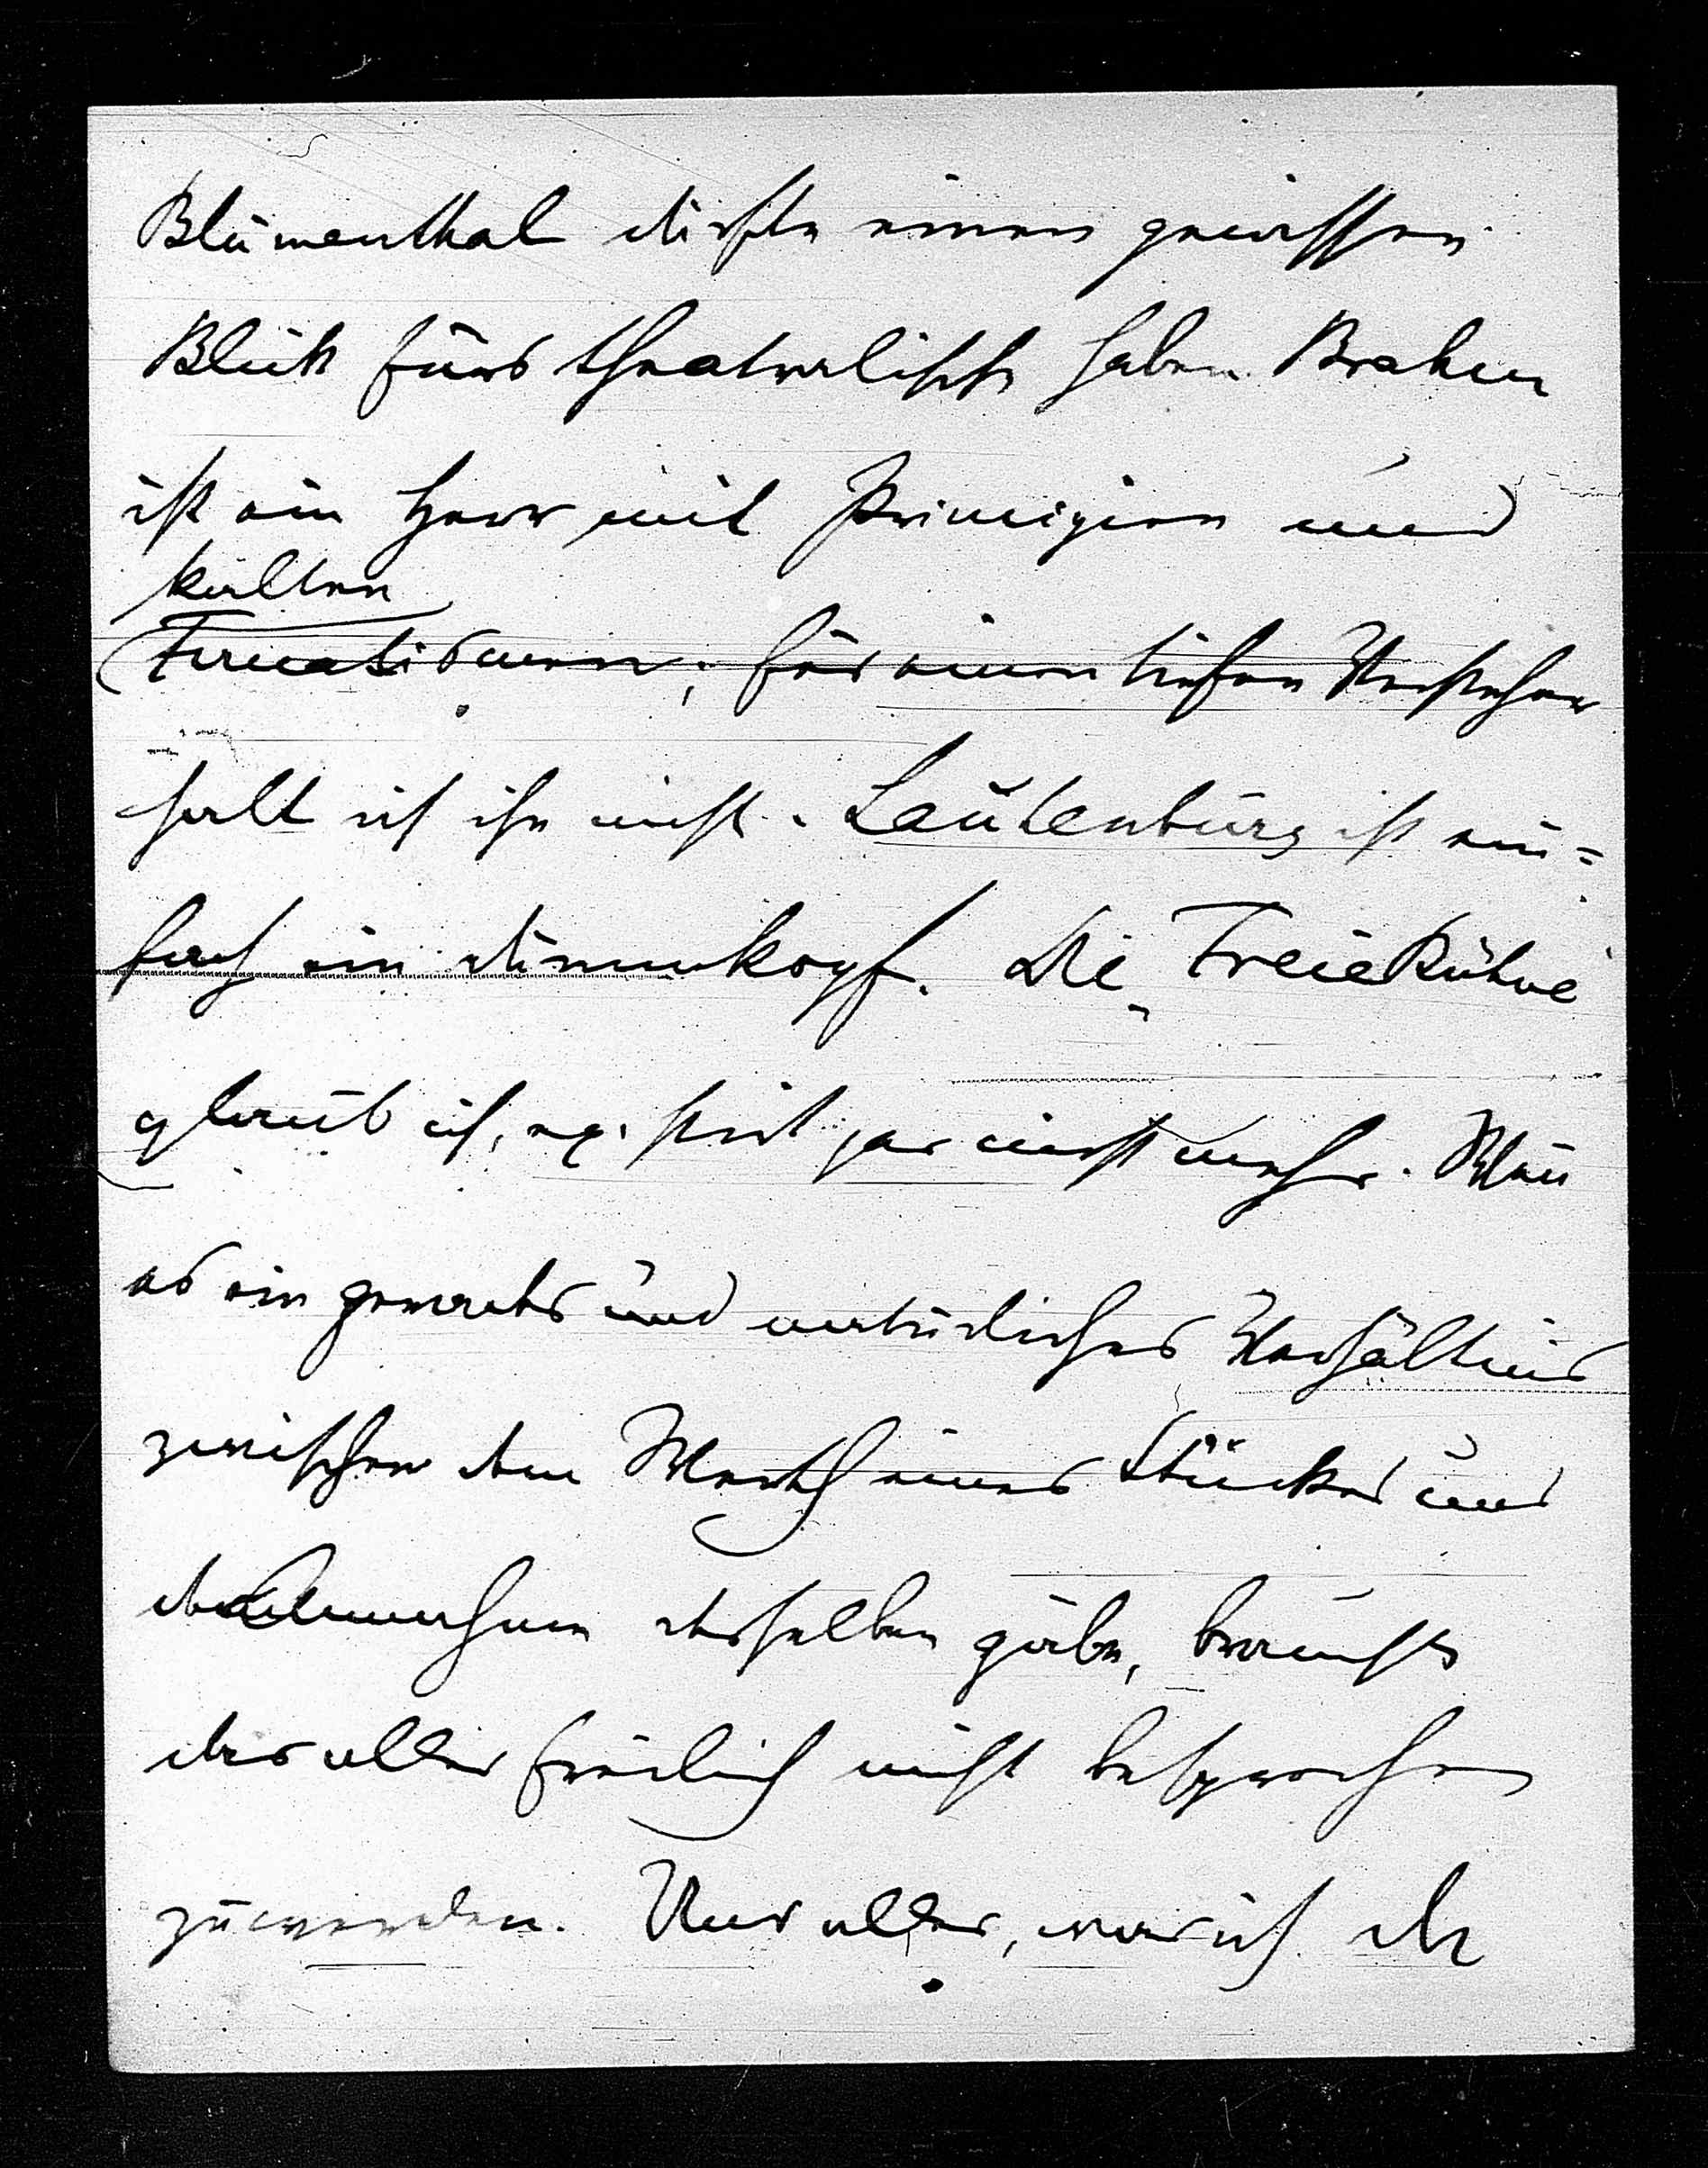 Blumenthal dürfte einen gewissen
Blick fürs theatralische haben. Brahm
ist ein Herr mit Principien und
kalten
Fanatismen; für einen tiefen Versteher
halt ich ihn nicht. Lautenburg ist ein=
fach ein Dummkopf. Die Freie Bühne
glaub ich, exi. stirt gar nicht mehr. Wenn
es ein gerechtes und natürliches Verhältnis
zwischen dem Werth eines Stückes und
dem Annehmen desselben gäbe, brauchte
das alles freilich nicht besprochen
zu werden. Und alles, was ich da